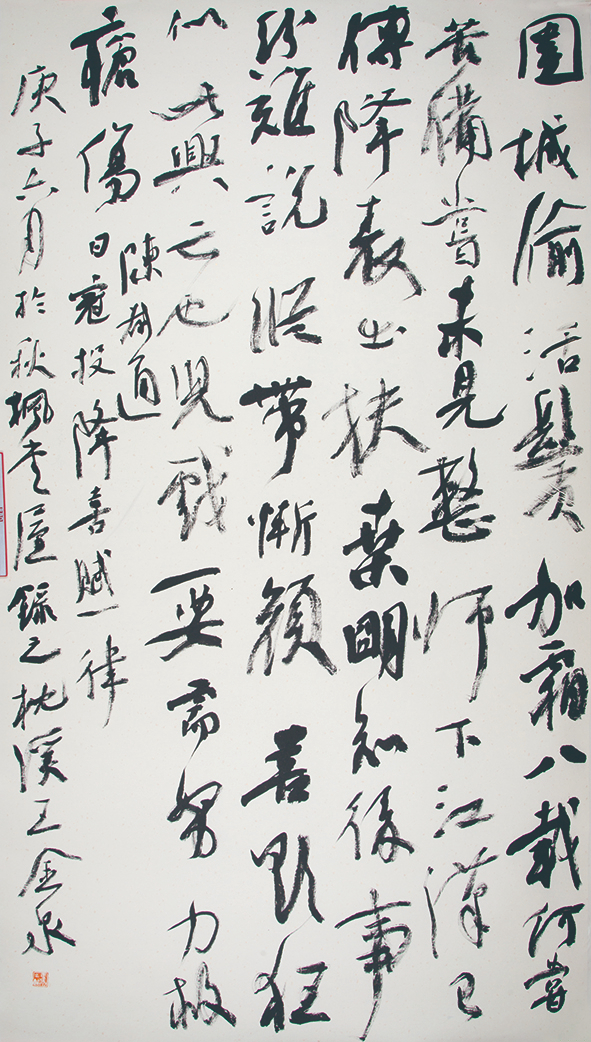 圍城偷活鬢加霜八載何嘗
苦備嘗未見整師下江漢已
傳降表出扶桑明知後事
紛難說縱帶慚顏喜欲狂
似此興亡也兒戲要需努力救
瘡傷
陳叔通
日寇投降喜賦一律
庚子六月於秋楓書屋錄之枕溪王金泉